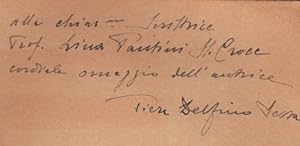 alla chiar.ma Scrittrice
Prof. Lina Tantini St. Croce
cordiale omaggio dell'autrice
Piera Delfino Sessa